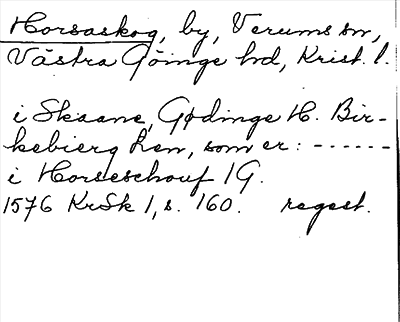 Horsaskog, by, Verums sn,
Västra Göinge hd, Krist. l.
i Skaane, Gødinge H. Bir-
kebierg Len, som er: ------
i Horseschouf 1G.
1576 KrSk 1, s. 160. regest.